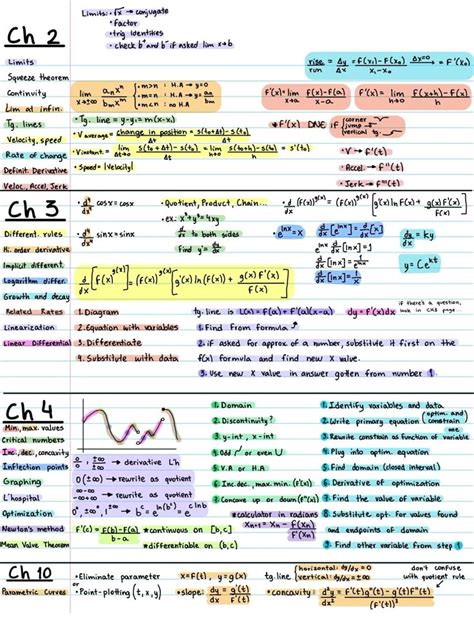 Ch 2
Limits
Squeeze theorem
Continvity
Lim at infin.
Tg. lines
Velocity, speed
Rate of change
Definit. Derivative
Veloc, Accel, Jerk
Limits: • √x → conjugate
• Factor
• trig identities
• check b⁺ and b⁻ if asked lim x→b
lim x→±∞ aₙxⁿ / bₘxᵐ
• m>n : H.A → y=0
• m=n : H.A → y= an/bm
• m<n : no HA
rise/run = Δy/Δx = f(x₁)-f(x₀) / x₁-x₀ Δx→0 = F'(x₀)
F'(x) = lim x→a f(x)-F(a) / x-a
F'(x) = lim h→0 f(x+h)-f(x) / h
• Tg. line = y-y₁ = m(x-x₁)
• V average = change in position / Δt = s(t₀+Δt)-s(t₀) / Δt
• V instant. = lim Δt→0 s(t₀+Δt)-s(t₀) / Δt = lim h→0 s(t₀+h)-s(t₀) / h = s'(t₀)
• Speed = |velocity|
• F'(x) DNE if corner
jump
vertical tg.
• V → f'(t)
• Accel. → F"(t)
• Jerk → f'''(t)
Ch 3
Different. rules
Hi. order derivative
Implicit different.
Logarithm differ.
Growth and decay
Related Rates
Linearization
Linear Differential
• d⁴/dx⁴ cosx = cosx
• d⁴/dx⁴ sinx = sinx
• Quotient, Product, Chain...
• ex. x⁴+y⁴=4xy
d/dx to both sides
Find y' = dy/dx
• d/dx (F(x))^g(x) = (F(x))^g(x) [g'(x) ln F(x) + g(x) F'(x) / F(x)]
d/dx [F(x)^g(x)] = (F(x))^g(x) [g'(x) ln(F(x)) + g(x) F'(x) / F(x)]
e^lnx = x
d/dx [e^lnx] = d/dx [x]
e^lnx d/dx [lnx] = 1
x d/dx [lnx] = 1
d/dx [lnx] = 1/x
dy/dx = ky
y = Ce^kt
if there's a question,
1. Diagram
2. Equation with variables
3. Differentiate
4. Substitute with data
tg. line is L(x) = F(a) + F'(a)(x-a) dy = f'(x)dx
1. Find from formula
2. if asked for approx of a number, substitute it first on the
f(x) formula and find new x value.
3. Use new x value in answer gotten from number 1
Ch 4
Min, max. values
Critical numbers
Inc, dec, concavity
Inflection points
Graphing
L'hospital
Optimization
Newton's method
Mean Value Theorem
0/0, ±∞/±∞ → derivative L'h
0(±∞) → rewrite as quotient
∞-∞ → rewrite as quotient
F'(c) = f(b)-F(a) / b-a
*continuous on [b,c]
*differentiable on (b,c)
1. Domain
2. Discontinuity?
3. y-int, x-int
4. Odd or even
5. V.A or H.A
6. Inc, dec, max, min. (F'(x))
7. Concave up or down (f"(x))
*calculator in radians
Xn+1 = Xn - F(Xn) / F'(Xn)
1. Identify variables and data
2. Write primary equation (optim. and) constrain
3. Rewrite constrain as function of variable
4. Plug into optim. equation
5. Find domain (closed interval)
6. Derivative of optimization
7. Find the value of variable
8. Substitute opt. for values found
and endpoints of domain
9. Find other variable from step 1
Ch 10
Parametric Curves
• Eliminate parameter
or
• Point-plotting (t, x, y)
x = F(t), y = g(x)
• slope: dy/dx = g'(t) / F'(t)
tg. line
horizontal: dy/dx = 0
vertical: dx/dy = 0
don't confuse
with quotient rule
• concavity: d²y/dx² = F'(t)g"(t) - g'(t)F"(t) / (F'(t))³